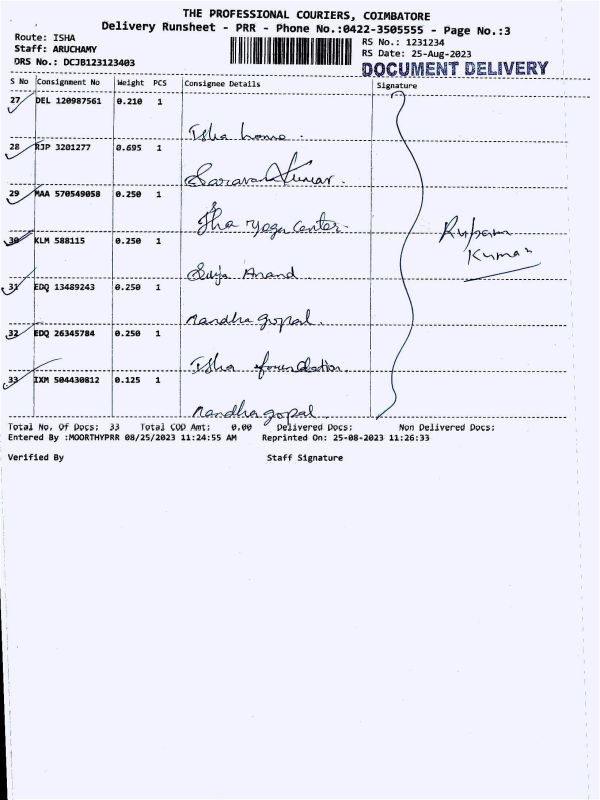 THE PROFESSIONAL COURIERS, COIMBATORE
Delivery Runsheet - PRR - Phone No.:0422-3505555 - Page No.:3
Route: ISHA
RS No.: 1231234
Staff: ARUCHAMY
RS Date: 25-Aug-2023
DRS No.: DCJB123123403
DOCUMENT DELIVERY
S No Consignment No Weight PCS Consignee Details Signature
27 DEL 120987561 0.210 1
Isha home.
28 RJP 3201277 0.695 1
Saravan Kumar.
29 MAA 570549058 0.250 1
Isha yoga Center.
30 KLM 588115 0.250 1
Anand
31 EDQ 13489243 0.250 1
Nandha gopal.
32 EDQ 26345784 0.250 1
Isha foundation.
33 IXM 504430812 0.125 1
Nandha gopal
Kumar
Total No. Of Docs: 33 Total COD Amt: 0.00 Delivered Docs: Non Delivered Docs:
Entered By :MOORTHYPRR 08/25/2023 11:24:55 AM Reprinted On: 25-08-2023 11:26:33
Verified By Staff Signature